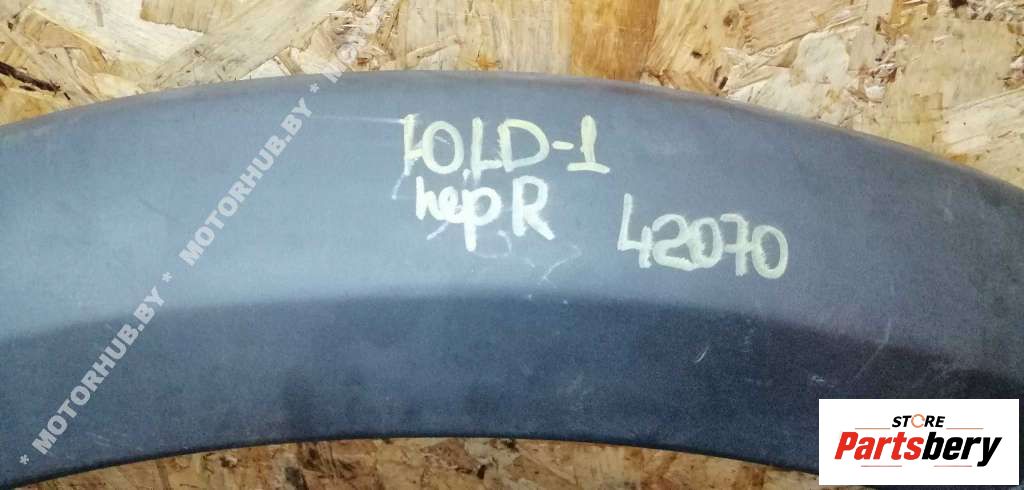 10.LD-1
пер R
42070
* MOTORHUB.BY * MOTORHUB.BY * MOTORHUB.BY *
STORE
Partsbery